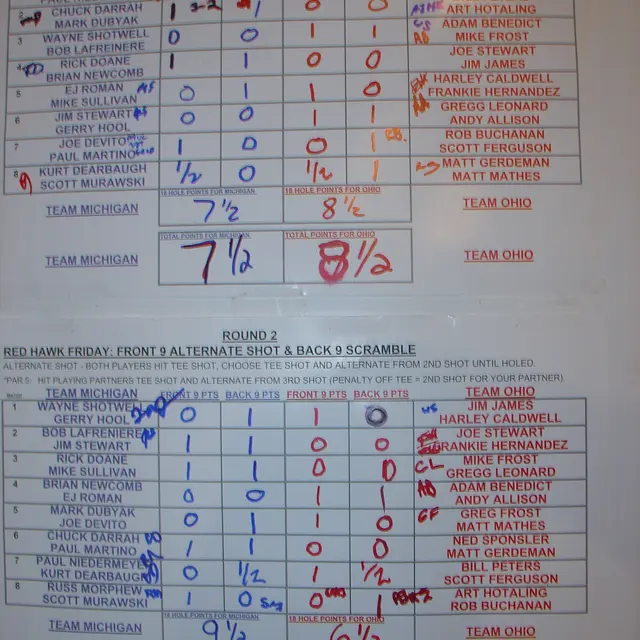 CHUCK DARRAH 1 3-2 1 0 0 ART HOTALING
MARK DUBYAK
3 WAYNE SHOTWELL 0 0 1 1 ADAM BENEDICT
BOB LAFRENIERE MIKE FROST
4 RICK DOANE 1 1 0 0 JOE STEWART
BRIAN NEWCOMB JIM JAMES
5 EJ ROMAN 0 1 1 0 HARLEY CALDWELL
MIKE SULLIVAN FRANKIE HERNANDEZ
6 JIM STEWART 0 0 1 1 GREGG LEONARD
GERRY HOOL ANDY ALLISON
7 JOE DEVITO 1 0 0 1 RB. ROB BUCHANAN
PAUL MARTINO SCOTT FERGUSON
8 KURT DEARBAUGH 1/2 0 1/2 1 MATT GERDEMAN
SCOTT MURAWSKI MATT MATHES
18 HOLE POINTS FOR MICHIGAN 18 HOLE POINTS FOR OHIO
TEAM MICHIGAN 7 1/2 8 1/2 TEAM OHIO
TOTAL POINTS FOR MICHIGAN TOTAL POINTS FOR OHIO
TEAM MICHIGAN 7 1/2 8 1/2 TEAM OHIO
ROUND 2
RED HAWK FRIDAY: FRONT 9 ALTERNATE SHOT & BACK 9 SCRAMBLE
ALTERNATE SHOT - BOTH PLAYERS HIT TEE SHOT, CHOOSE TEE SHOT AND ALTERNATE FROM 2ND SHOT UNTIL HOLED.
*PAR 5: HIT PLAYING PARTNERS TEE SHOT AND ALTERNATE FROM 3RD SHOT (PENALTY OFF TEE = 2ND SHOT FOR YOUR PARTNER)
TEAM MICHIGAN FRONT 9 PTS BACK 9 PTS FRONT 9 PTS BACK 9 PTS TEAM OHIO
1 WAYNE SHOTWELL 0 1 1 0 JIM JAMES
GERRY HOOL HARLEY CALDWELL
2 BOB LAFRENIERE 1 1 0 0 JOE STEWART
JIM STEWART FRANKIE HERNANDEZ
3 RICK DOANE 1 1 0 0 CL MIKE FROST
MIKE SULLIVAN GREGG LEONARD
4 BRIAN NEWCOMB 0 0 1 1 AB ADAM BENEDICT
EJ ROMAN ANDY ALLISON
5 MARK DUBYAK 0 1 1 0 GF GREG FROST
JOE DEVITO MATT MATHES
6 CHUCK DARRAH 1 1 0 0 NED SPONSLER
PAUL MARTINO MATT GERDEMAN
7 PAUL NIEDERMEYER 0 1/2 1 1/2 BILL PETERS
KURT DEARBAUGH SCOTT FERGUSON
8 RUSS MORPHEW 1 0 0 1 ART HOTALING
SCOTT MURAWSKI ROB BUCHANAN
18 HOLE POINTS FOR MICHIGAN 18 HOLE POINTS FOR OHIO
TEAM MICHIGAN 9 1/2 6 1/2 TEAM OHIO